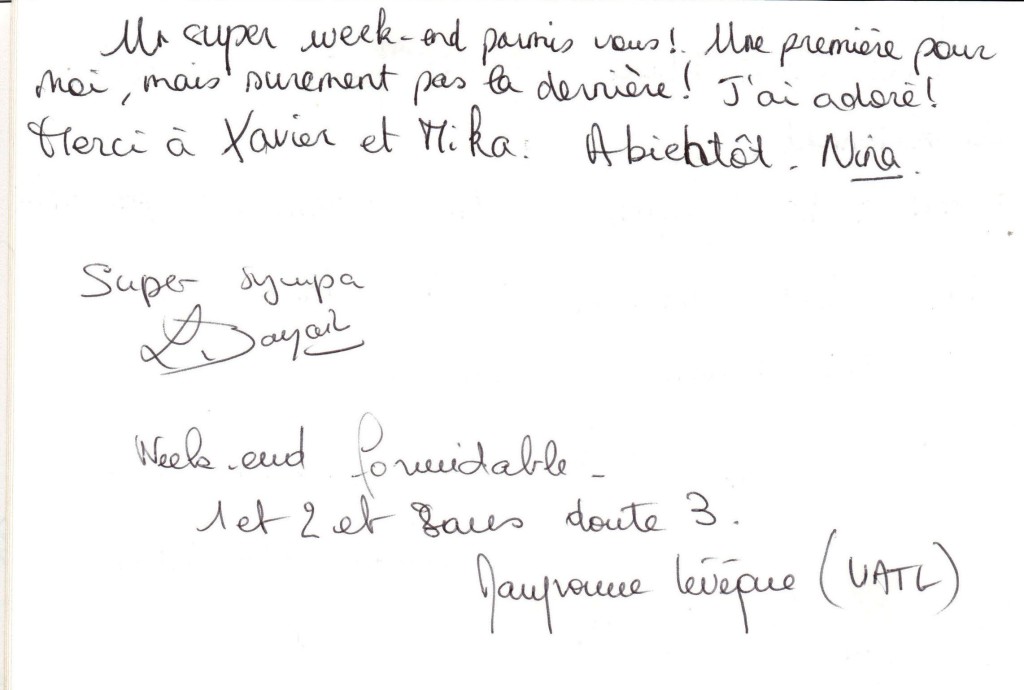 Un super week-end parmis vous! Une première pour
moi, mais surement pas la dernière! J'ai adoré!
Merci à Xavier et Mika. A bientôt. Nina.
Super sympa
Week-end formidable -
1 et 2 et sans doute 3.
Levêque (UATL)